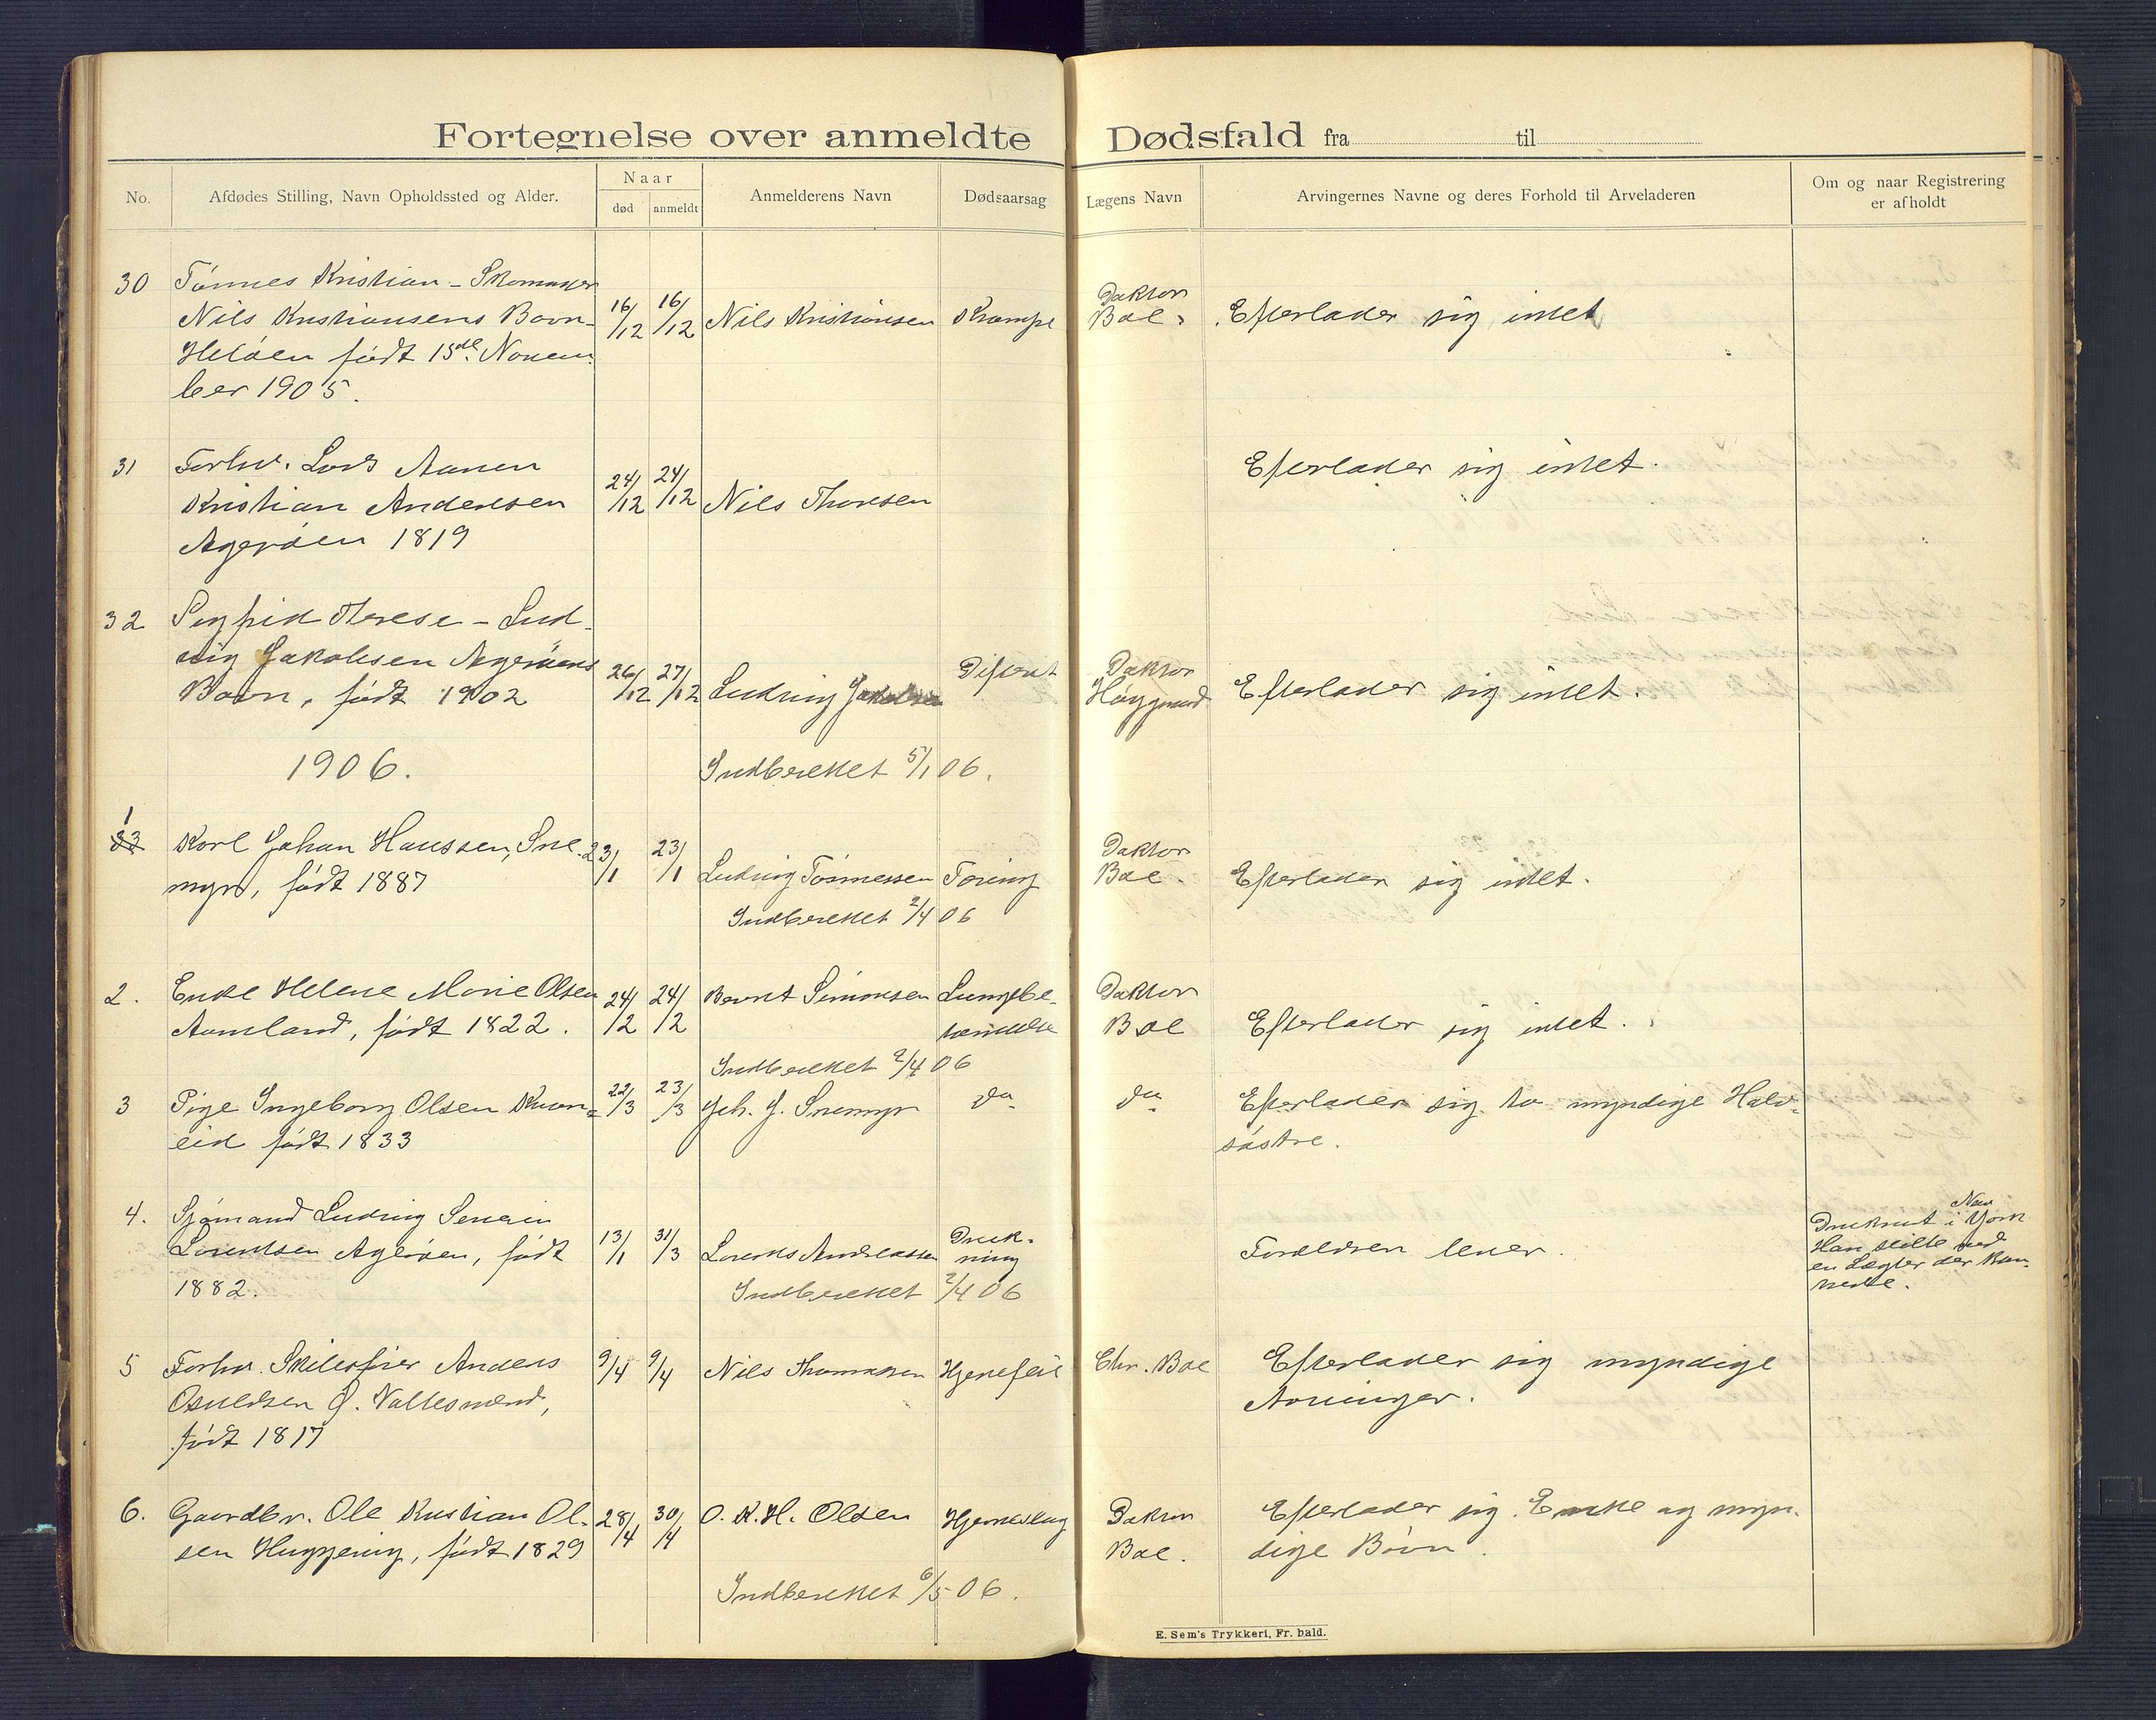 Fortegnelse over anmeldte Dødsfald fra til
No.
Afdødes Stilling, Navn Opholdssted og Alder.
Naar
død
anmeldt
Anmelderens Navn
Dødsaarsag
Lægens Navn
Arvingernes Navne og deres Forhold til Arveladeren
Om og naar Registrering
er afholdt
30 Tønnes Kristian - Skomager
Nils Kristiansens Barn - 16/12 16/12 Nils Kristiansen Krampe Doktor Boe. Efterlader sig intet
Heløen født 15de Novem-
ber 1905.
31 Forhv. Lods Aanen
Kristian Andersen 24/12 24/12 Nils Thoresen Efterlader sig intet.
Agerøen 1819
32 Sigfrid Terese - Lud-
vig Jakobsen Agerøens
Barn, født 1902 26/12 27/12 Ludvig Jakobsen Difterit Doktor Efterlader sig intet.
1906. Indberettet 5/1 06.
1 33 Karl Johan Hanssen, Sne-
myr, født 1887 23/1 23/1 Ludvig Tønnessen Tæring Doktor Boe. Efterlader sig intet.
Indberettet 2/4 06
2. Enke Helene Marie Olsen 24/2 24/2 Bernt Simonsen Lungebe-
Aamland, født 1822. tændelse Doktor Boe Efterlader sig intet.
Indberettet 2/4 06
3 Pige Ingeborg Olsen 22/3 23/3 Joh. J. Snemyr do do Efterlader sig to myndige Halv-
eid født 1833 søstre.
4. Sjømand Ludvig Severin
Lorentsen Agerøen, født 13/1 31/3 Lorents Andreassen Druk-
ning Forældren lever.
1882. Indberettet 2/4 06
Druknet i New York
Han stilte ved
en Lægter der kan-
trede.
5 Forhv. Skibsfører Anders 9/4 9/4 Nils Thomassen Hjertefeil Chr. Boe Efterlader sig myndige
Osuldsen Ø. Vallesverd, Arvinger.
født 1817
6. Gaardbr. Ole Kristian Ol- 28/4 30/4 O. K. H. Olsen Hjerneslag Doktor Efterlader sig Enke og myn-
sen Huggening, født 1829 Boe. dige Børn.
Indberettet 6/5 06.
E. Sem's Trykkeri, Fr. hald.